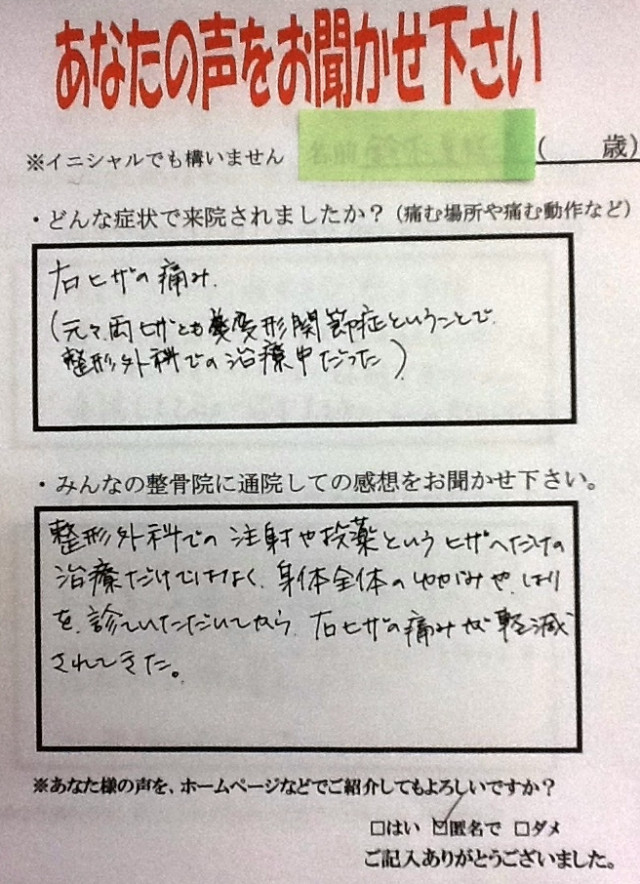 あなたの声をお聞かせ下さい
※イニシャルでも構いません
(　　歳)
・どんな症状で来院されましたか？(痛む場所や痛む動作など)
右ヒザの痛み.
(元々、両ヒザとも変形関節症ということで、
整形外科での治療中だった)
・みんなの整骨院に通院しての感想をお聞かせ下さい。
整形外科での注射や投薬というヒザへだけの
治療だけではなく、身体全体のゆがみや、はり
を、診ていただいてから、右ヒザの痛みが軽減
されてきた。
※あなた様の声を、ホームページなどでご紹介してもよろしいですか？
□はい ☑匿名で □ダメ
ご記入ありがとうございました。